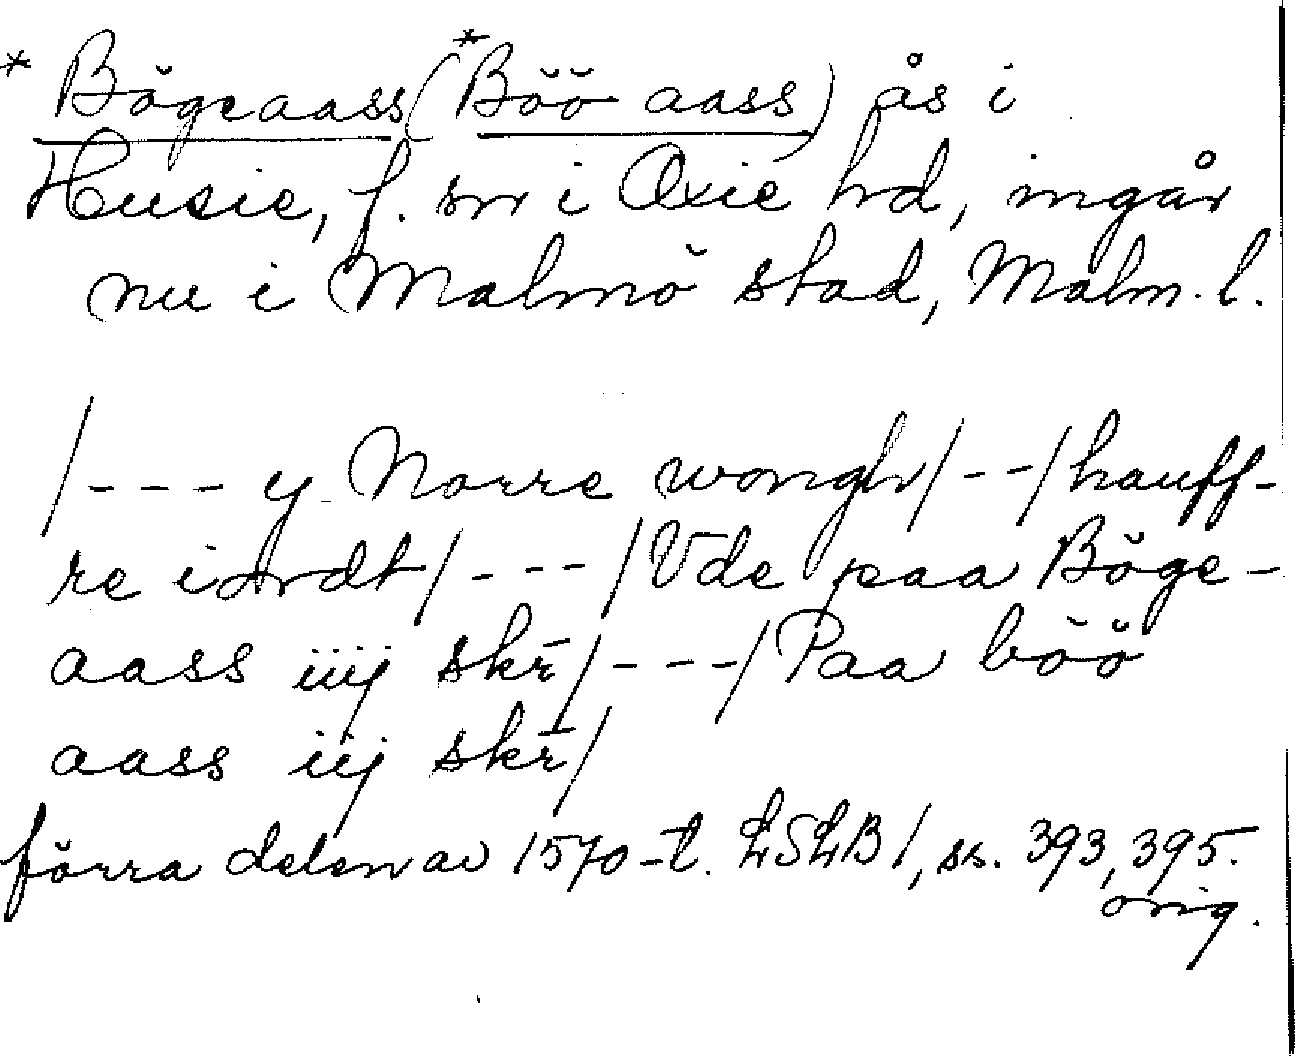 * Bögeaass (*Böö aass) ås i
Husie, f. sn i Oxie hd, ingår
nu i Malmö stad, Malm. l.
/--- y Norre wongh/--/hauff-
re iordt/---/Vde paa Böge-
aass iiij skr̄/---/Paa böö
aass iij skr̄/
förra delen av 1570-t. LSLB 1, ss. 393, 395.
orig.